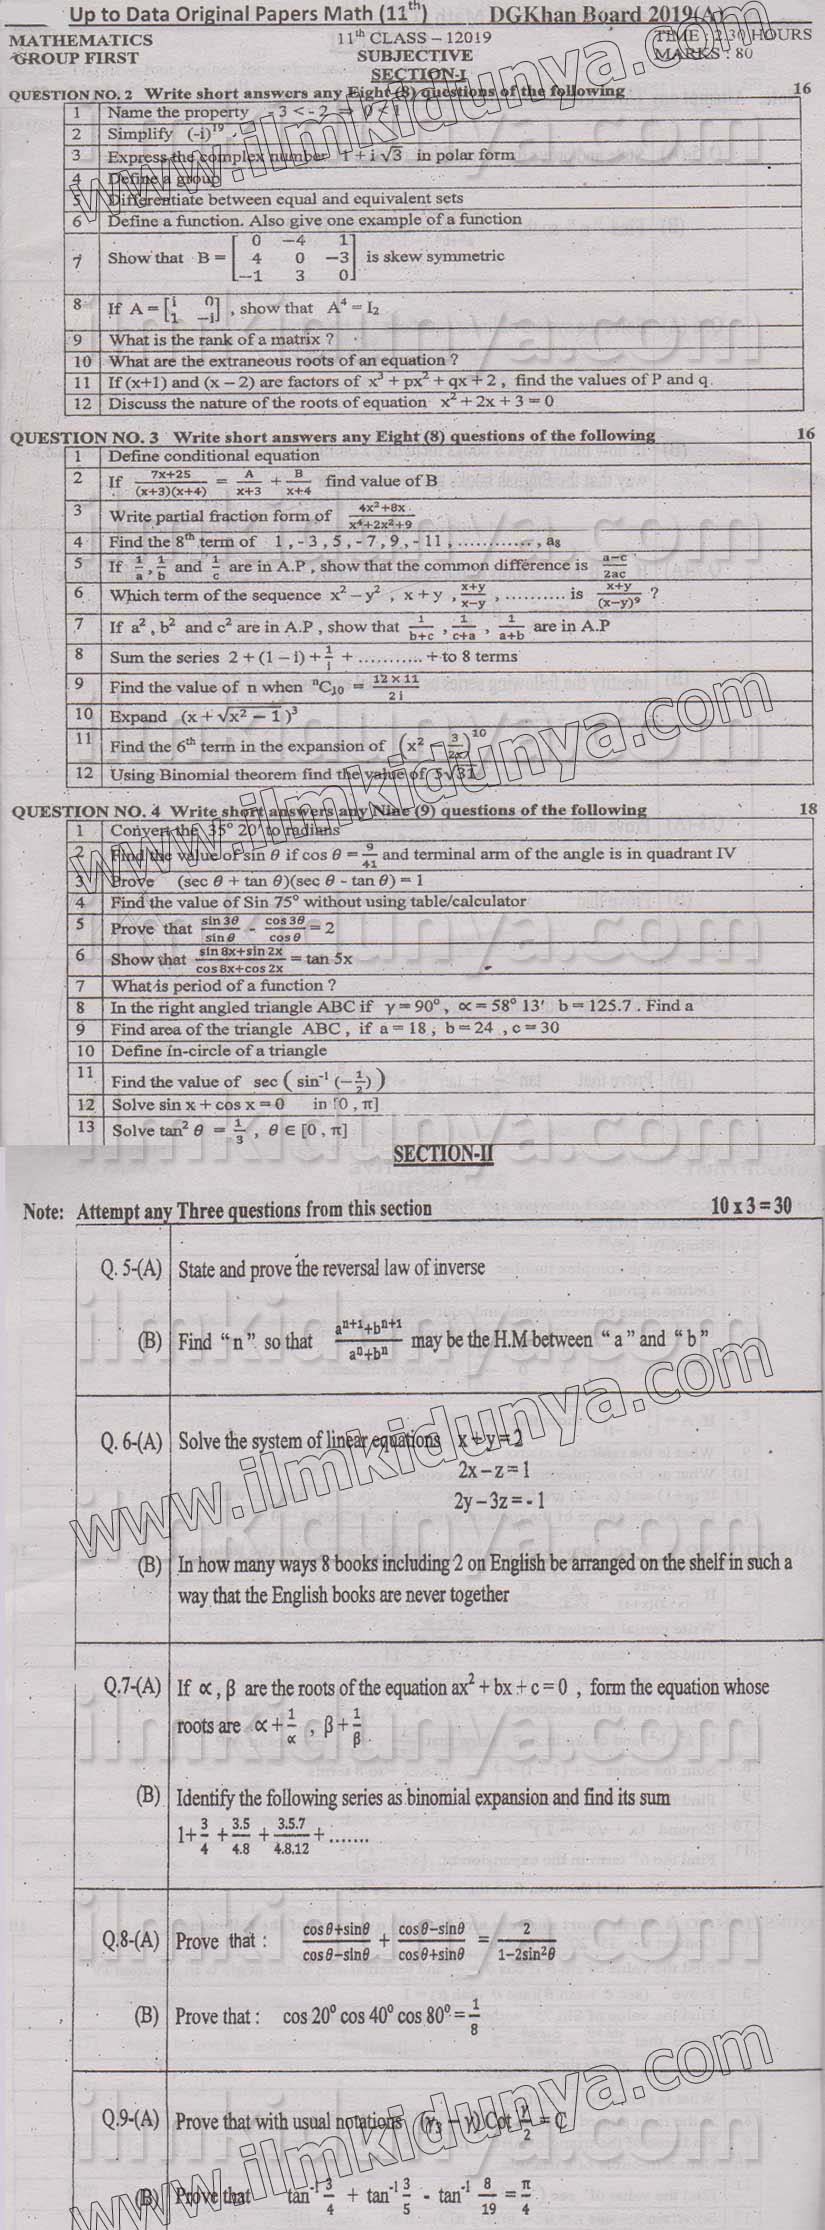 Up to Data Original Papers Math (11th) DGKhan Board 2019(A)
MATHEMATICS 11th CLASS – 12019 TIME : 2.30 HOURS
GROUP FIRST SUBJECTIVE MARKS : 80
SECTION-I
QUESTION NO. 2 Write short answers any Eight (8) questions of the following 16
1 Name the property -3 < -2 ⇒ 0 < 1
2 Simplify (-i)^19
3 Express the complex number 1 + i √3 in polar form
4 Define a group
5 Differentiate between equal and equivalent sets
6 Define a function. Also give one example of a function
7 Show that B = [0 −4 1; 4 0 −3; −1 3 0] is skew symmetric
8 If A = [i 0; 1 −i] , show that A^4 = I2
9 What is the rank of a matrix ?
10 What are the extraneous roots of an equation ?
11 If (x+1) and (x – 2) are factors of x^3 + px^2 + qx + 2 , find the values of P and q.
12 Discuss the nature of the roots of equation x^2 + 2x + 3 = 0
QUESTION NO. 3 Write short answers any Eight (8) questions of the following 16
1 Define conditional equation
2 If 7x+25/(x+3)(x+4) = A/x+3 + B/x+4 find value of B
3 Write partial fraction form of 4x^2+8x/x^4+2x^2+9
4 Find the 8th term of 1 , - 3 , 5 , - 7 , 9 , - 11 , ............ , a8
5 If 1/a , 1/b and 1/c are in A.P , show that the common difference is a−c/2ac
6 Which term of the sequence x^2 – y^2 , x + y , x+y/x−y , .......... is x+y/(x−y)^9 ?
7 If a^2 , b^2 and c^2 are in A.P , show that 1/b+c , 1/c+a , 1/a+b are in A.P
8 Sum the series 2 + (1 – i) + 1/i + ........... + to 8 terms
9 Find the value of n when nC10 = 12 × 11/2 i
10 Expand (x + √x^2 − 1 )^3
11 Find the 6th term in the expansion of (x^2 - 3/2x)^10
12 Using Binomial theorem find the value of 5√31
QUESTION NO. 4 Write short answers any Nine (9) questions of the following 18
1 Convert the 35° 20' to radians
2 Find the value of sin θ if cos θ = 9/41 and terminal arm of the angle is in quadrant IV
3 Prove (sec θ + tan θ)(sec θ - tan θ) = 1
4 Find the value of Sin 75° without using table/calculator
5 Prove that sin 3θ/sin θ - cos 3θ/cos θ = 2
6 Show that sin 8x+sin 2x/cos 8x+cos 2x = tan 5x
7 What is period of a function ?
8 In the right angled triangle ABC if γ = 90° , ∝ = 58° 13' b = 125.7 . Find a
9 Find area of the triangle ABC , if a = 18 , b = 24 , c = 30
10 Define in-circle of a triangle
11 Find the value of sec ( sin^-1 (−1/2) )
12 Solve sin x + cos x = 0 in [0 , π]
13 Solve tan^2 θ = 1/3 , θ ∈ [0 , π]
SECTION-II
Note: Attempt any Three questions from this section 10 x 3 = 30
Q. 5-(A) State and prove the reversal law of inverse
(B) Find “ n ” so that a^n+1+b^n+1/a^n+b^n may be the H.M between “ a ” and “ b ”
Q. 6-(A) Solve the system of linear equations x + y = 2
2x – z = 1
2y – 3z = - 1
(B) In how many ways 8 books including 2 on English be arranged on the shelf in such a
way that the English books are never together
Q.7-(A) If ∝ , β are the roots of the equation ax^2 + bx + c = 0 , form the equation whose
roots are ∝ + 1/∝ , β + 1/β
(B) Identify the following series as binomial expansion and find its sum
1+ 3/4 + 3.5/4.8 + 3.5.7/4.8.12 + .......
Q.8-(A) Prove that : cos θ+sinθ/cos θ−sinθ + cos θ−sinθ/cos θ+sinθ = 2/1−2sin^2θ
(B) Prove that : cos 20° cos 40° cos 80° = 1/8
Q.9-(A) Prove that with usual notations (γ3 – γ) Cot γ/2 = C
(B) Prove that tan^-1 3/4 + tan^-1 3/5 - tan^-1 8/19 = π/4
www.ilmkidunya.com
ilmkidunya.com